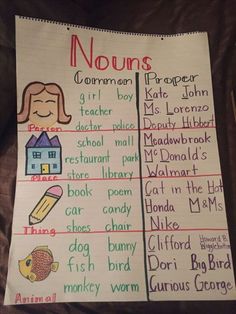 Nouns
Common Proper
girl boy Kate John
teacher Ms Lorenzo
doctor police Deputy Hibbert
Person
school mall Meadowbrook
restaurant park McDonald's
store library Walmart
Place
book poem Cat in the Hat
car candy Honda M&Ms
shoes chair Nike
Thing
dog bunny Clifford Howard B
fish bird Dori Big Bird
monkey worm Curious George
Animal